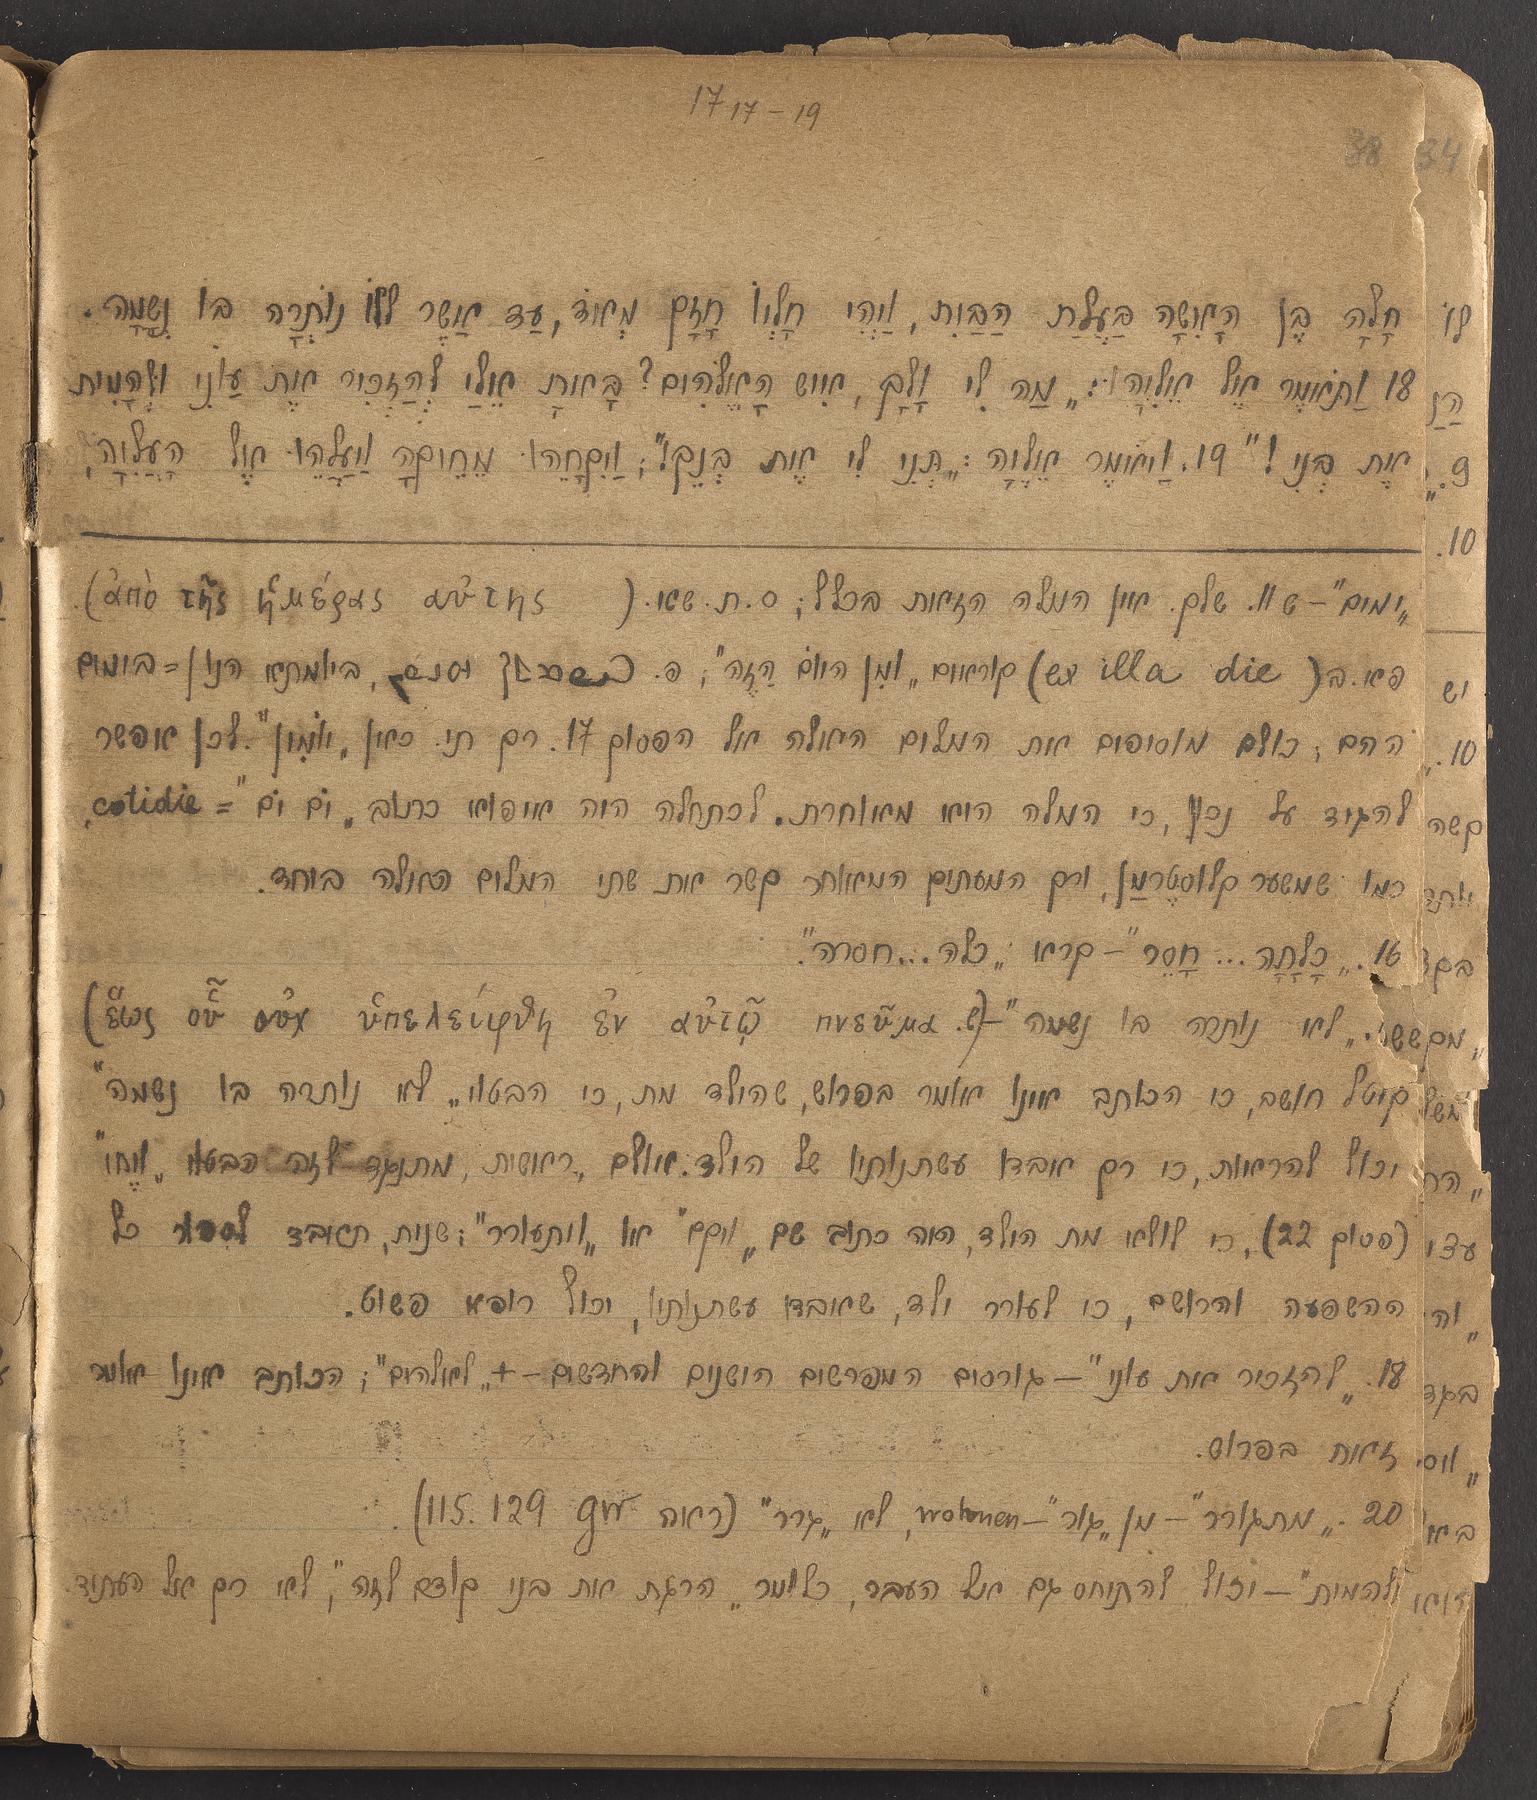 17 17-19
38 34
חָלָה בֶּן הָאִשָּׁה בַּעֲלַת הַבַּיִת, וַיְהִי חָלְיוֹ חָזָק מְאוֹד, עַד אֲשֶׁר לֹא נוֹתְרָה בּוֹ נְשָׁמָה.
18 וַתֹּאמֶר אֶל אֵלִיָּהוּ: „מַה לִי וָלָךְ, אִישׁ הָאֱלֹהִים? בָּאתָ אֵלַי לְהַזְכִּיר אֶת עֲוֹנִי וּלְהָמִית
אֶת בְּנִי!" 19. וַיֹּאמֶר אֵלֶיהָ: „תְּנִי לִי אֶת בְּנֵךְ!"; וַיִּקָּחֵהוּ מֵחֵיקָהּ וַיַּעֲלֵהוּ אֶל הָעֲלִיָּה,
„ימים" – ש׳׳ שלק. אין המלה הזאת בכלל; ס.ת. שגו. (ἀπὸ τῆς ἡμέρας αὐτῆς).
פא. ב (ex illa die) קוראים „וּמִן היום הַזֶה"; פ. ביומתא הנון = בימים
ההם; כולם מוסיפים את המלים האלה אל הפסוק 17. רק תי. כאן „וּמִן". לכן אפשר
להגיד על נכון, כי המלה היא מאוחרת. לכתחלה היה איפוא כתוב „יֹם יֹם" = cotidie,
כמו שמשער קלוסטֶרמַן, ורק המעתיק המאוחר קשר את שתי המלים האלה ביחד.
16. „כָּלָתָה ... חָסֵר" – קרא: „כלה ... חסרה".
„לא נותרה בו נשמה" – (ש. ἕως οὗ οὐχ ὑπελείφθη ἐν αὐτῷ πνεῦμα)
קיטל חושב, כי הכותב אינו אומר בפרוש, שהילד מת, כי הבטוי „לא נותרה בו נשמה"
יכול להראות, כי רק אבדו עשתנותיו של הילד. אולם, ראשית, מתנגד לזה הבטוי „וַיֶחי"
(פסוק 22), כי לולא מת הילד, היה כתוב שם „ויקם" או „ויתעורר"; שנית, תאבד לספור כל
ההשפעה והרושם, כי לעורר ילד, שאבדו עשתנותיו, יכול רופא פשוט.
18. „להזכיר את עוני" – גורסים המפרשים הישנים והחדשים – + „לאלהים"; הכותב אינו אומר
זאת בפרוש.
20. „מתגורר" – מן „גור" – wohnen, לא „גרר" (ראה GW 129 .115).
„ולהמית" – יכול להתיחס גם אל העבר, כלומר „הרגת את בני קודם לזה", לא רק אל העתיד.